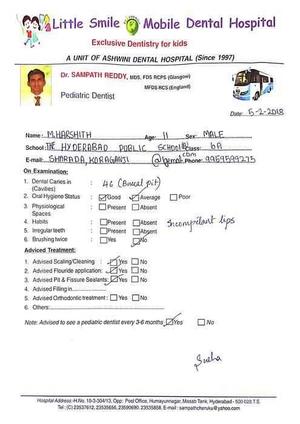 Little Smile Mobile Dental Hospital
Exclusive Dentistry for kids
A UNIT OF ASHWINI DENTAL HOSPITAL (Since 1997)
Dr. SAMPATH REDDY, MDS, FDS RCPS (Glasgow)
MFDS RCS (England)
Pediatric Dentist
Date: 5-2-2018
Name: M.HARSHITH Age: 11 Sex: MALE
School: THE HYDERABAD PUBLIC SCHOOL Class: 6A
E-mail: @gmail.com Phone: 9959599275
On Examination:
1. Dental Caries in (Cavities) : 46 (Buccal pit)
2. Oral Hygiene Status : Good Average Poor
3. Physiological Spaces : Present Absent
4. Habits : Present Absent Incompetant lips
5. Irregular teeth : Present Absent
6. Brushing twice : Yes No
Adviced Treatment:
1. Advised Scaling/Cleaning : Yes No
2. Advised Flouride application: Yes No
3. Advised Pit & Fissure Sealants: Yes No
4. Advised Filling in
5. Advised Orthodontic treatment : Yes No
6. Others:
Note: Advised to see a pediatric dentist every 3-6 months Yes No
Hospital Address:-H.No. 10-3-304/13, Opp: Post Office, Humayunnagar, Masab Tank, Hyderabad - 500 028 T.S.
Tel: (C) 23537612, 23535656, 23590690, 23535858. E-mail : sampathcheruku@yahoo.com